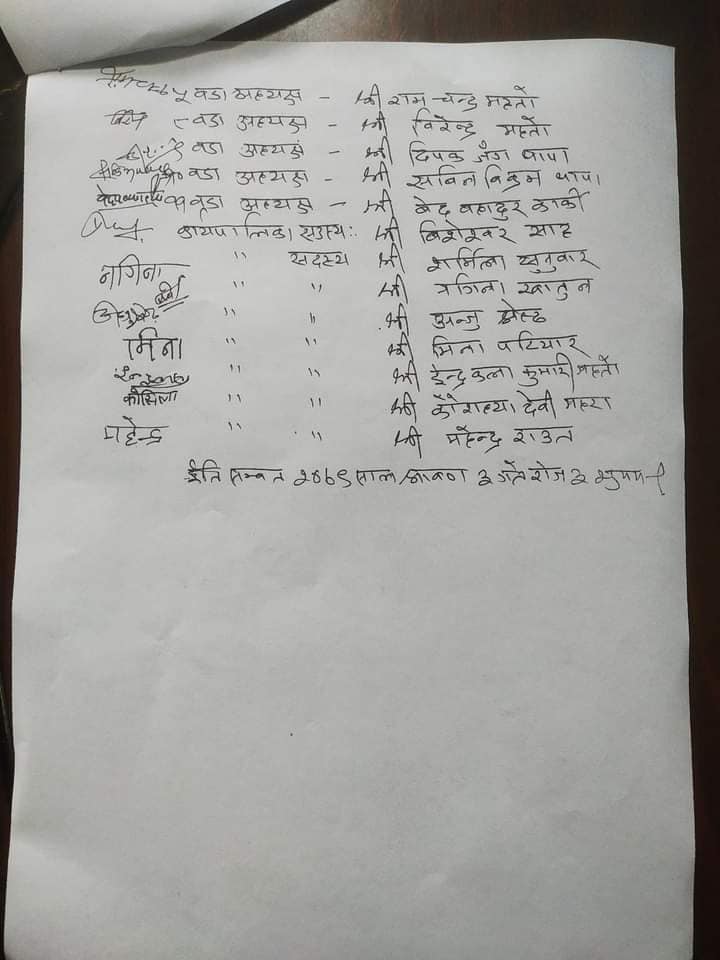 ५ वडा अध्यक्ष - श्री राम चन्द्र महतो
८ वडा अध्यक्ष - श्री विरेन्द्र महतो
९ वडा अध्यक्ष - श्री दिपक जँग थापा
१० वडा अध्यक्ष - श्री सविन विक्रम थापा
११ वडा अध्यक्ष - श्री बेद बहादुर कार्की
कार्यपालिका सदस्य: श्री बिशेश्वर साह
नगिना " सदस्य श्री शर्मिला सुनुवार
" " श्री नगिना खातुन
" " श्री अन्जु श्रेष्ठ
मिना " " श्री मिना परियार
" " श्री ईन्द्र कला कुमारी महतो
कौसिला " " श्री कौशल्या देवी महरा
महेन्द्र " " श्री महेन्द्र राउत
ईति सम्वत २०७९ साल श्रावण ३ गते रोज ३ शुभम्